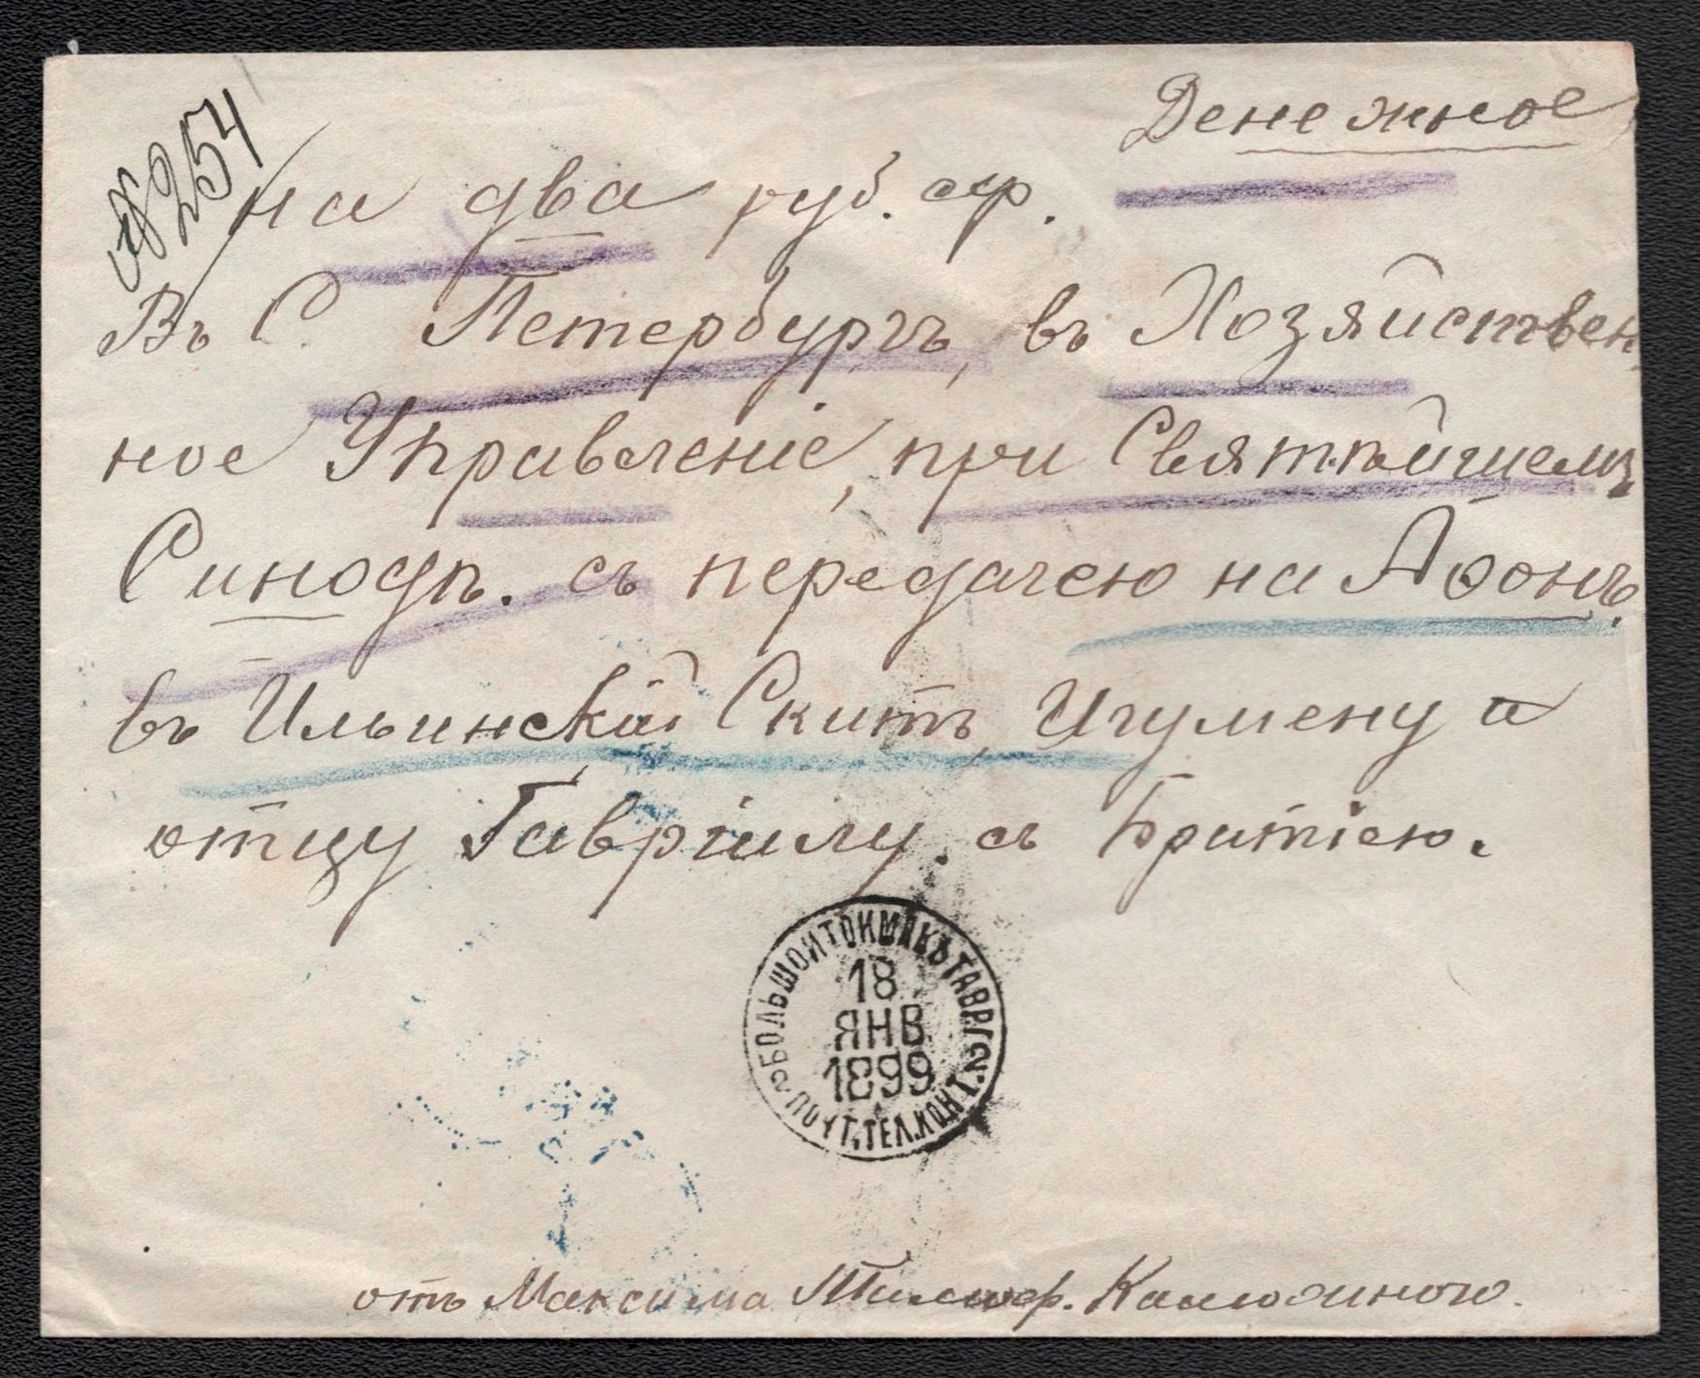 № 254
Денежное
на два руб. сер.
Въ С. Петербургъ, въ Хозяйствен
ное Управленіе, при Святѣйшемъ
Синодѣ. съ передачею на Аѳонъ.
въ Ильинскій Скитъ, Игумену и
отцу Гавріилу. съ Братіею.
БОЛЬШОЙ ТОКМАКЪ ТАВР. Г.
18
ЯНВ
1899
ПОЧТ. ТЕЛ. КОНТ.
отъ Максима